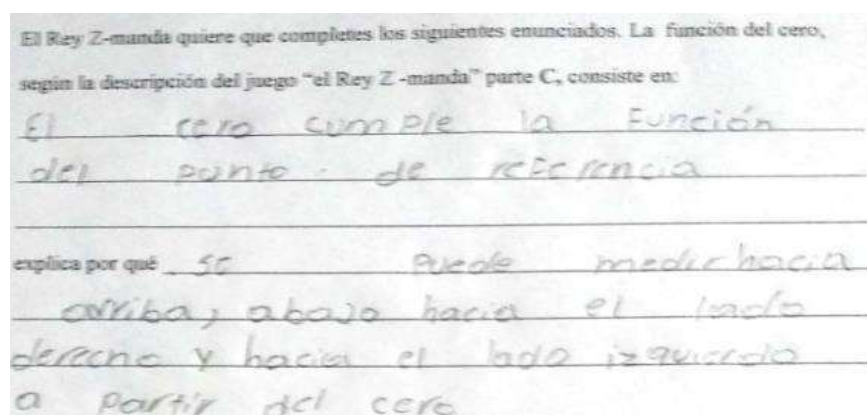 El Rey Z-manda quiere que completes los siguientes enunciados. La función del cero,
según la descripción del juego "el Rey Z -manda" parte C, consiste en:
El cero cumple la Función
del punto de referencia
explica por qué se puede medir hacia
arriba, abajo hacia el lado
derecho y hacia el lado izquierdo
a partir del cero